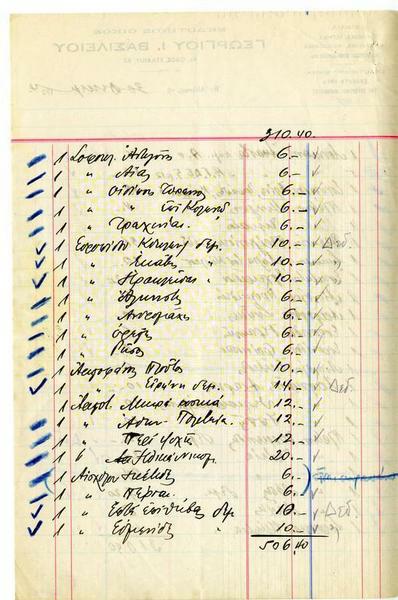 ΕΚΔΟΤΙΚΟΣ ΟΙΚΟΣ
ΓΕΩΡΓΙΟΥ Ι. ΒΑΣΙΛΕΙΟΥ
210.40
1 Σοφοκλ. Αντιγόνη 6.-
1 " Αίας 6.-
1 " Οιδίπους Τύραννος 6.-
1 " " Επί Κολωνώ 6.-
1 " Τραχίνιαι 6.-
1 Ευριπίδου Κύκλωψ δεμ. 10.- Δεδ.
1 " Εκάβη " 10.-
1 " Ηρακλείδαι " 10.-
1 " Άλκηστις 6.-
1 " Ανδρομάχη 6.-
1 " Ορέστης 6.-
1 " Ρήσος 6.-
1 Αριστοφάνης Πλούτος 10.-
1 " Ειρήνη δεμ. 14.- Δεδ.
1 Αριστοτ. Μικρά φυσικά 12.-
1 " Αθην. Πολιτεία 12.-
1 " Περί ψυχής 12.-
1 " Ηθικά Νικομ. 20.-
1 Αισχύλου Ικέτιδες 6.-
1 " Πέρσαι 6.-
1 " Επτά επί Θήβας δεμ. 10.- Δεδ.
1 " Ευμενίδες " 10.-
506.40